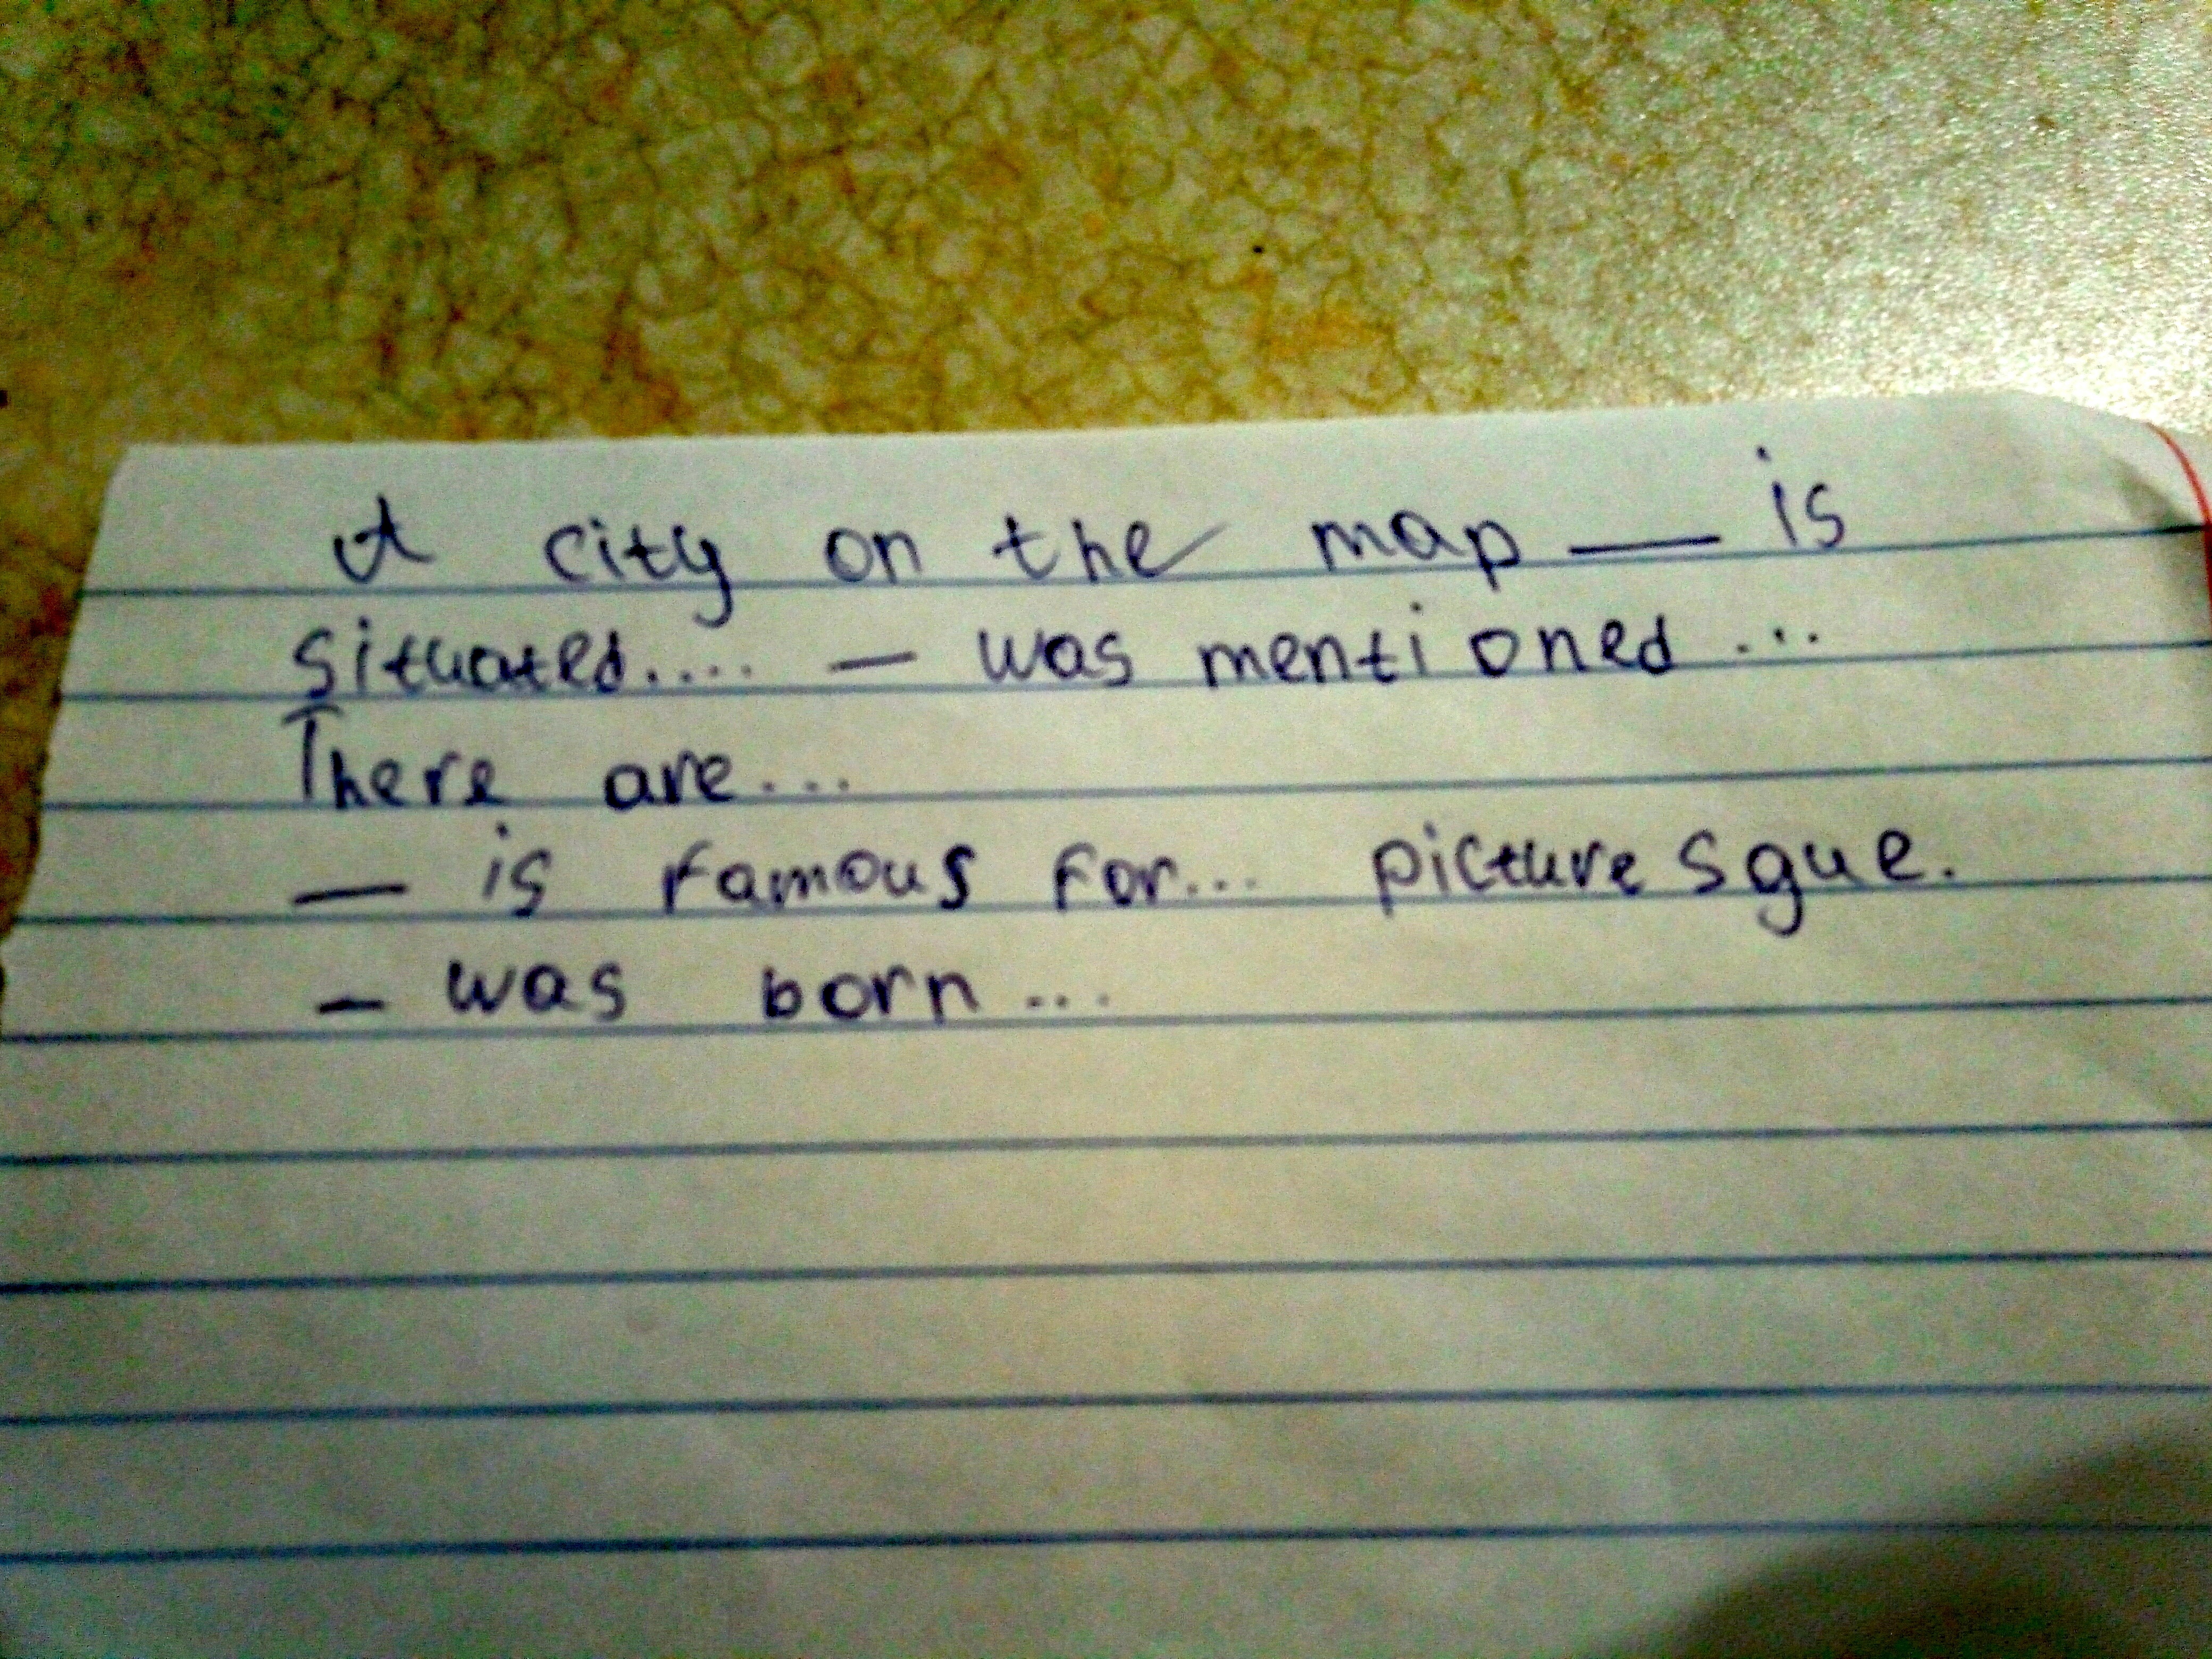 A city on the map — is
situated.... — was mentioned...
There are...
— is famous for... picturesgue.
— was born...